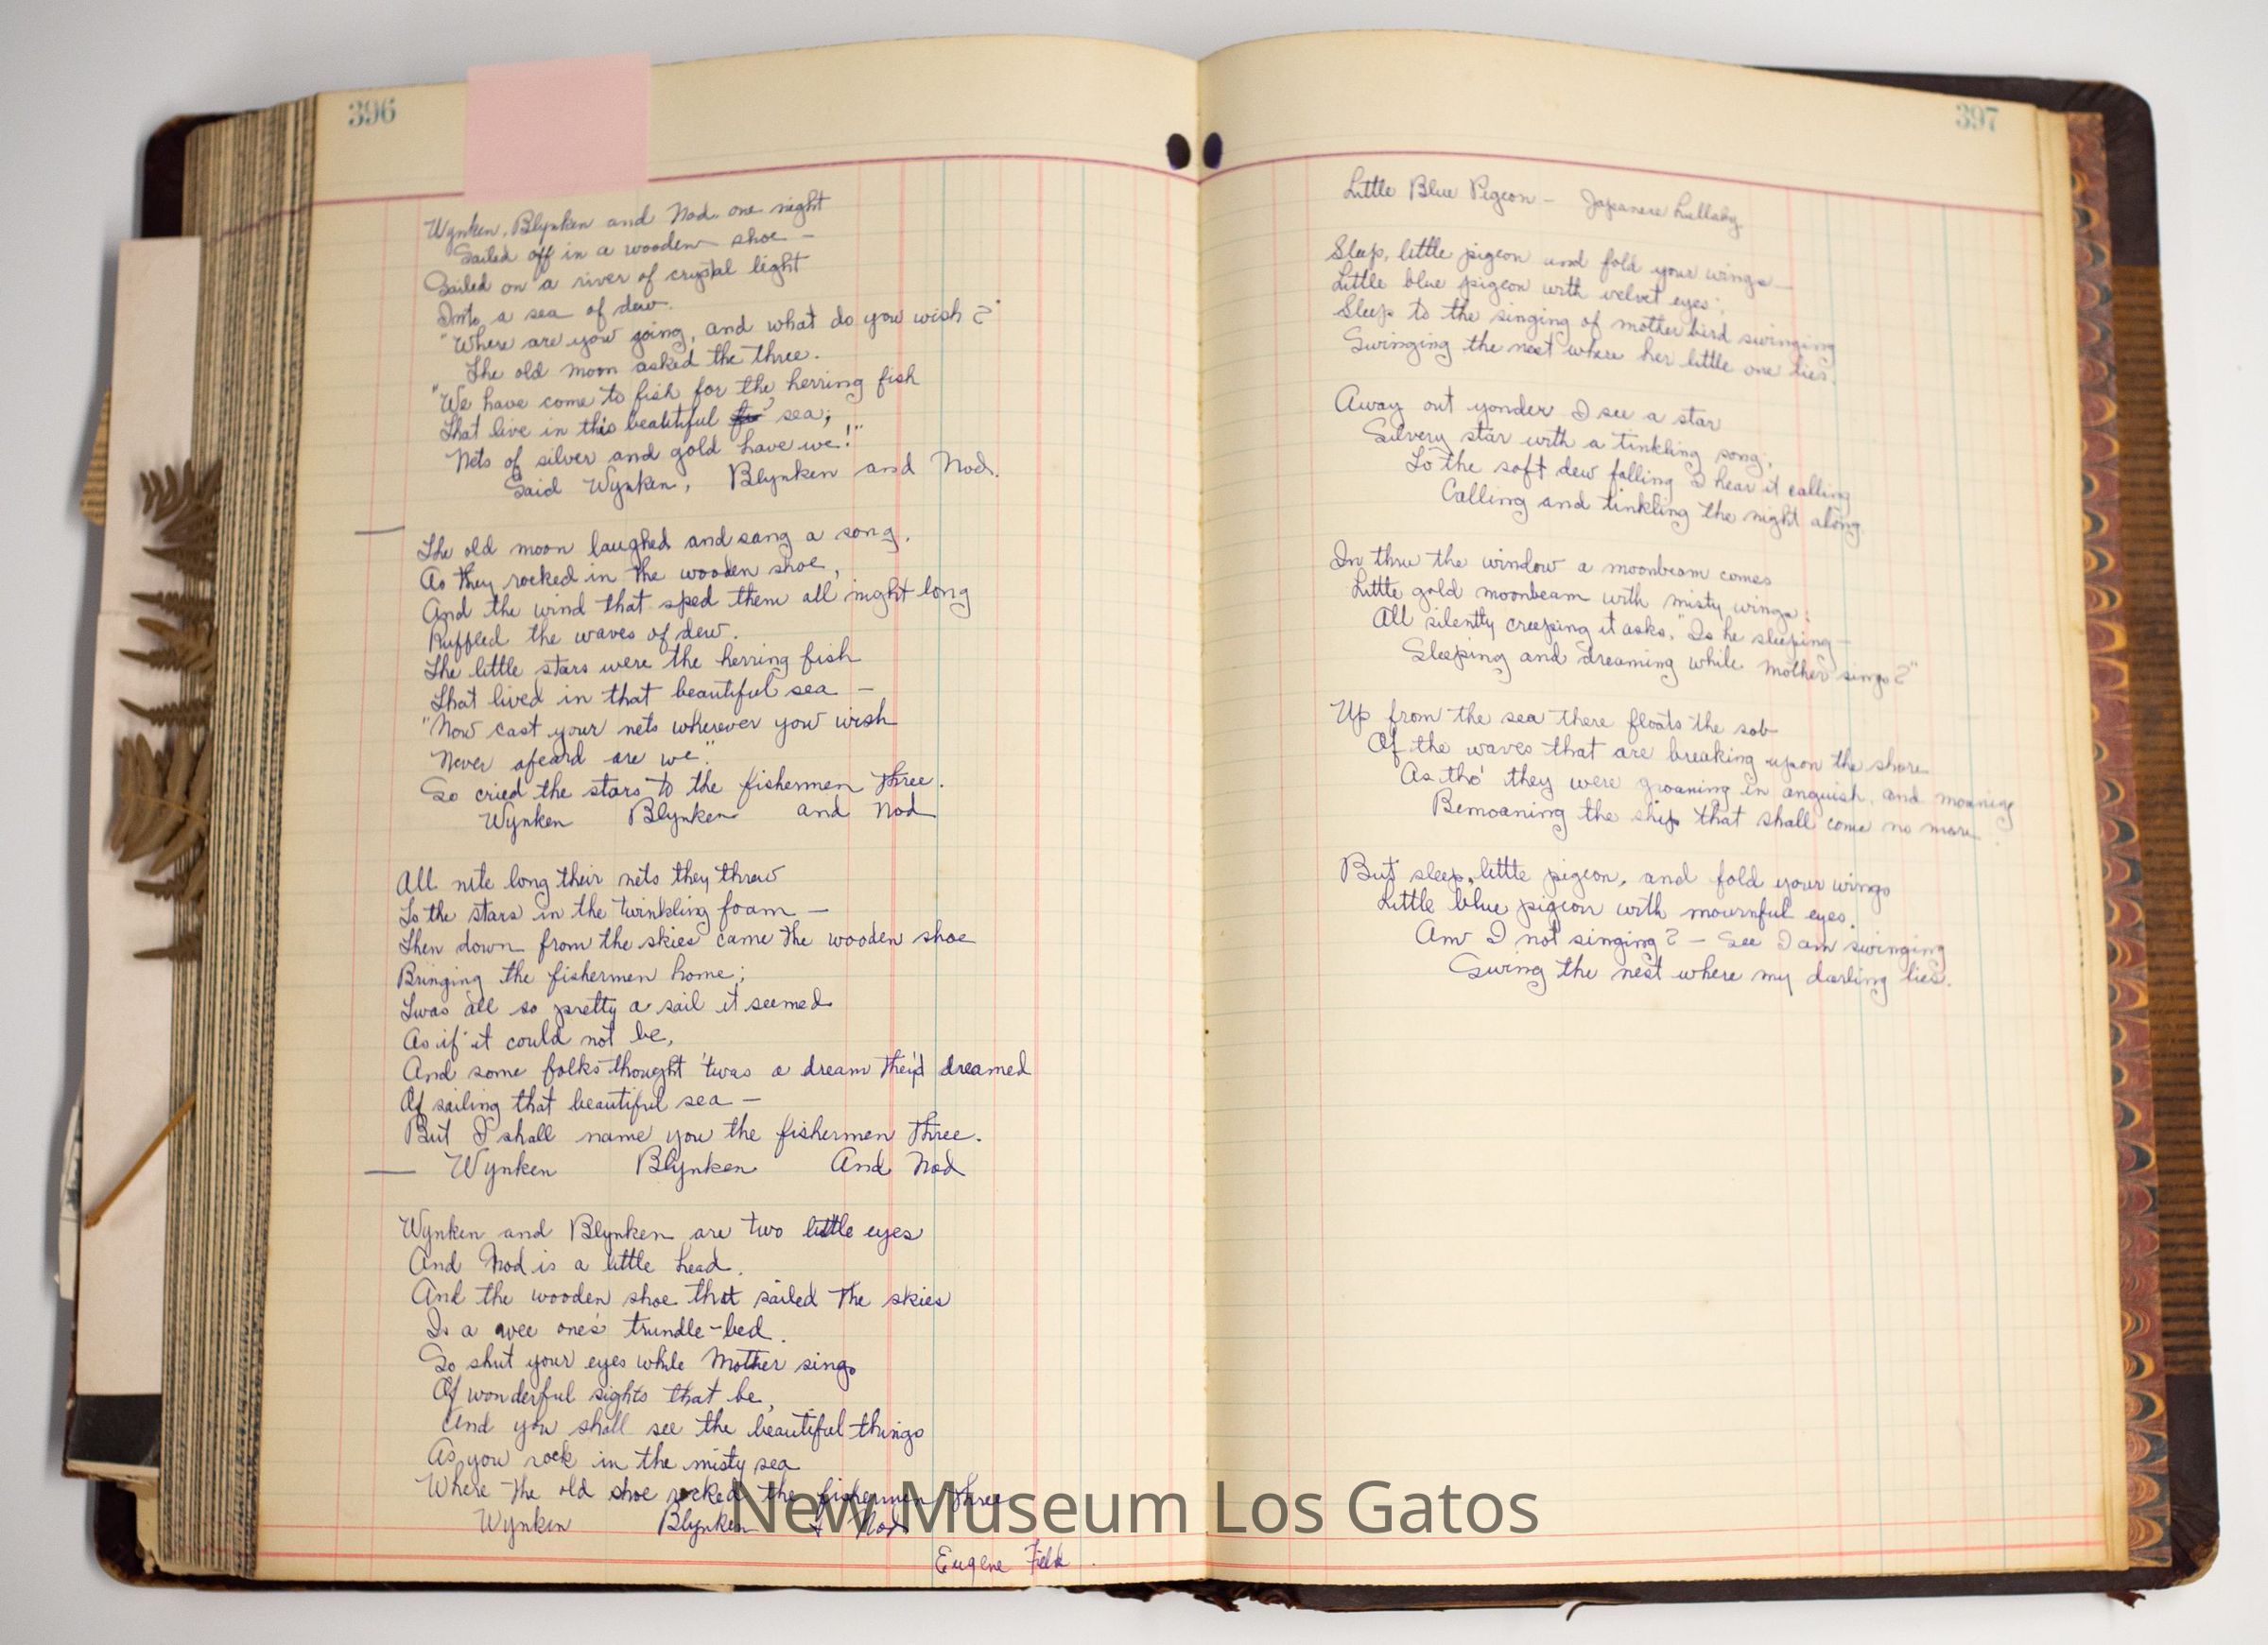 396
Wynken, Blynken and Nod one night
Sailed off in a wooden shoe —
Sailed on a river of crystal light
Into a sea of dew.
"Where are you going, and what do you wish?"
The old moon asked the three.
"We have come to fish for the herring fish
That live in this beautiful sea;
Nets of silver and gold have we!"
Said Wynken, Blynken and Nod.
The old moon laughed and sang a song,
As they rocked in the wooden shoe,
And the wind that sped them all night long
Ruffled the waves of dew.
The little stars were the herring fish
That lived in that beautiful sea —
"Now cast your nets wherever you wish
Never afeard are we."
So cried the stars to the fishermen three.
Wynken Blynken and Nod
All nite long their nets they threw
To the stars in the twinkling foam —
Then down from the skies came the wooden shoe
Bringing the fishermen home;
Twas all so pretty a sail it seemed
As if it could not be,
And some folks thought 'twas a dream they'd dreamed
Of sailing that beautiful sea —
But I shall name you the fishermen three.
Wynken Blynken And Nod
Wynken and Blynken are two little eyes
And Nod is a little head.
And the wooden shoe that sailed the skies
Is a wee one's trundle-bed.
So shut your eyes while Mother sings
Of wonderful sights that be,
And you shall see the beautiful things
As you rock in the misty sea
Where the old shoe rocked the fishermen three
Wynken Blynken & Nod
Eugene Field.
397
Little Blue Pigeon — Japanese Lullaby
Sleep, little pigeon and fold your wings —
Little blue pigeon with velvet eyes;
Sleep to the singing of mother bird swinging
Swinging the nest where her little one lies.
Away out yonder I see a star
Silvery star with a tinkling song;
To the soft dew falling I hear it calling
Calling and tinkling the night along.
In thru the window a moonbeam comes
Little gold moonbeam with misty wings;
All silently creeping it asks, "Is he sleeping —
Sleeping and dreaming while mother sings?"
Up from the sea there floats the sob
Of the waves that are breaking upon the shore
As tho' they were groaning in anguish, and moaning
Bemoaning the ship that shall come no more.
But sleep, little pigeon, and fold your wings
Little blue pigeon with mournful eyes.
Am I not singing? — See I am swinging
Swing the nest where my darling lies.
New Museum Los Gatos